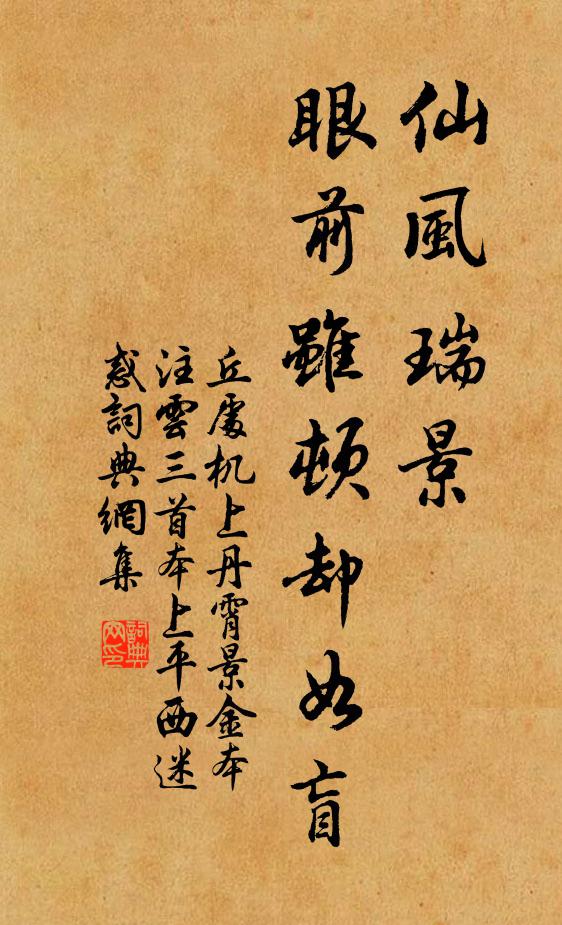 仙風瑞景
眼前雖頓却如盲
丘處机上丹霄景金本
注雲三首本上平西迷
惑詞典網集
詞典网印